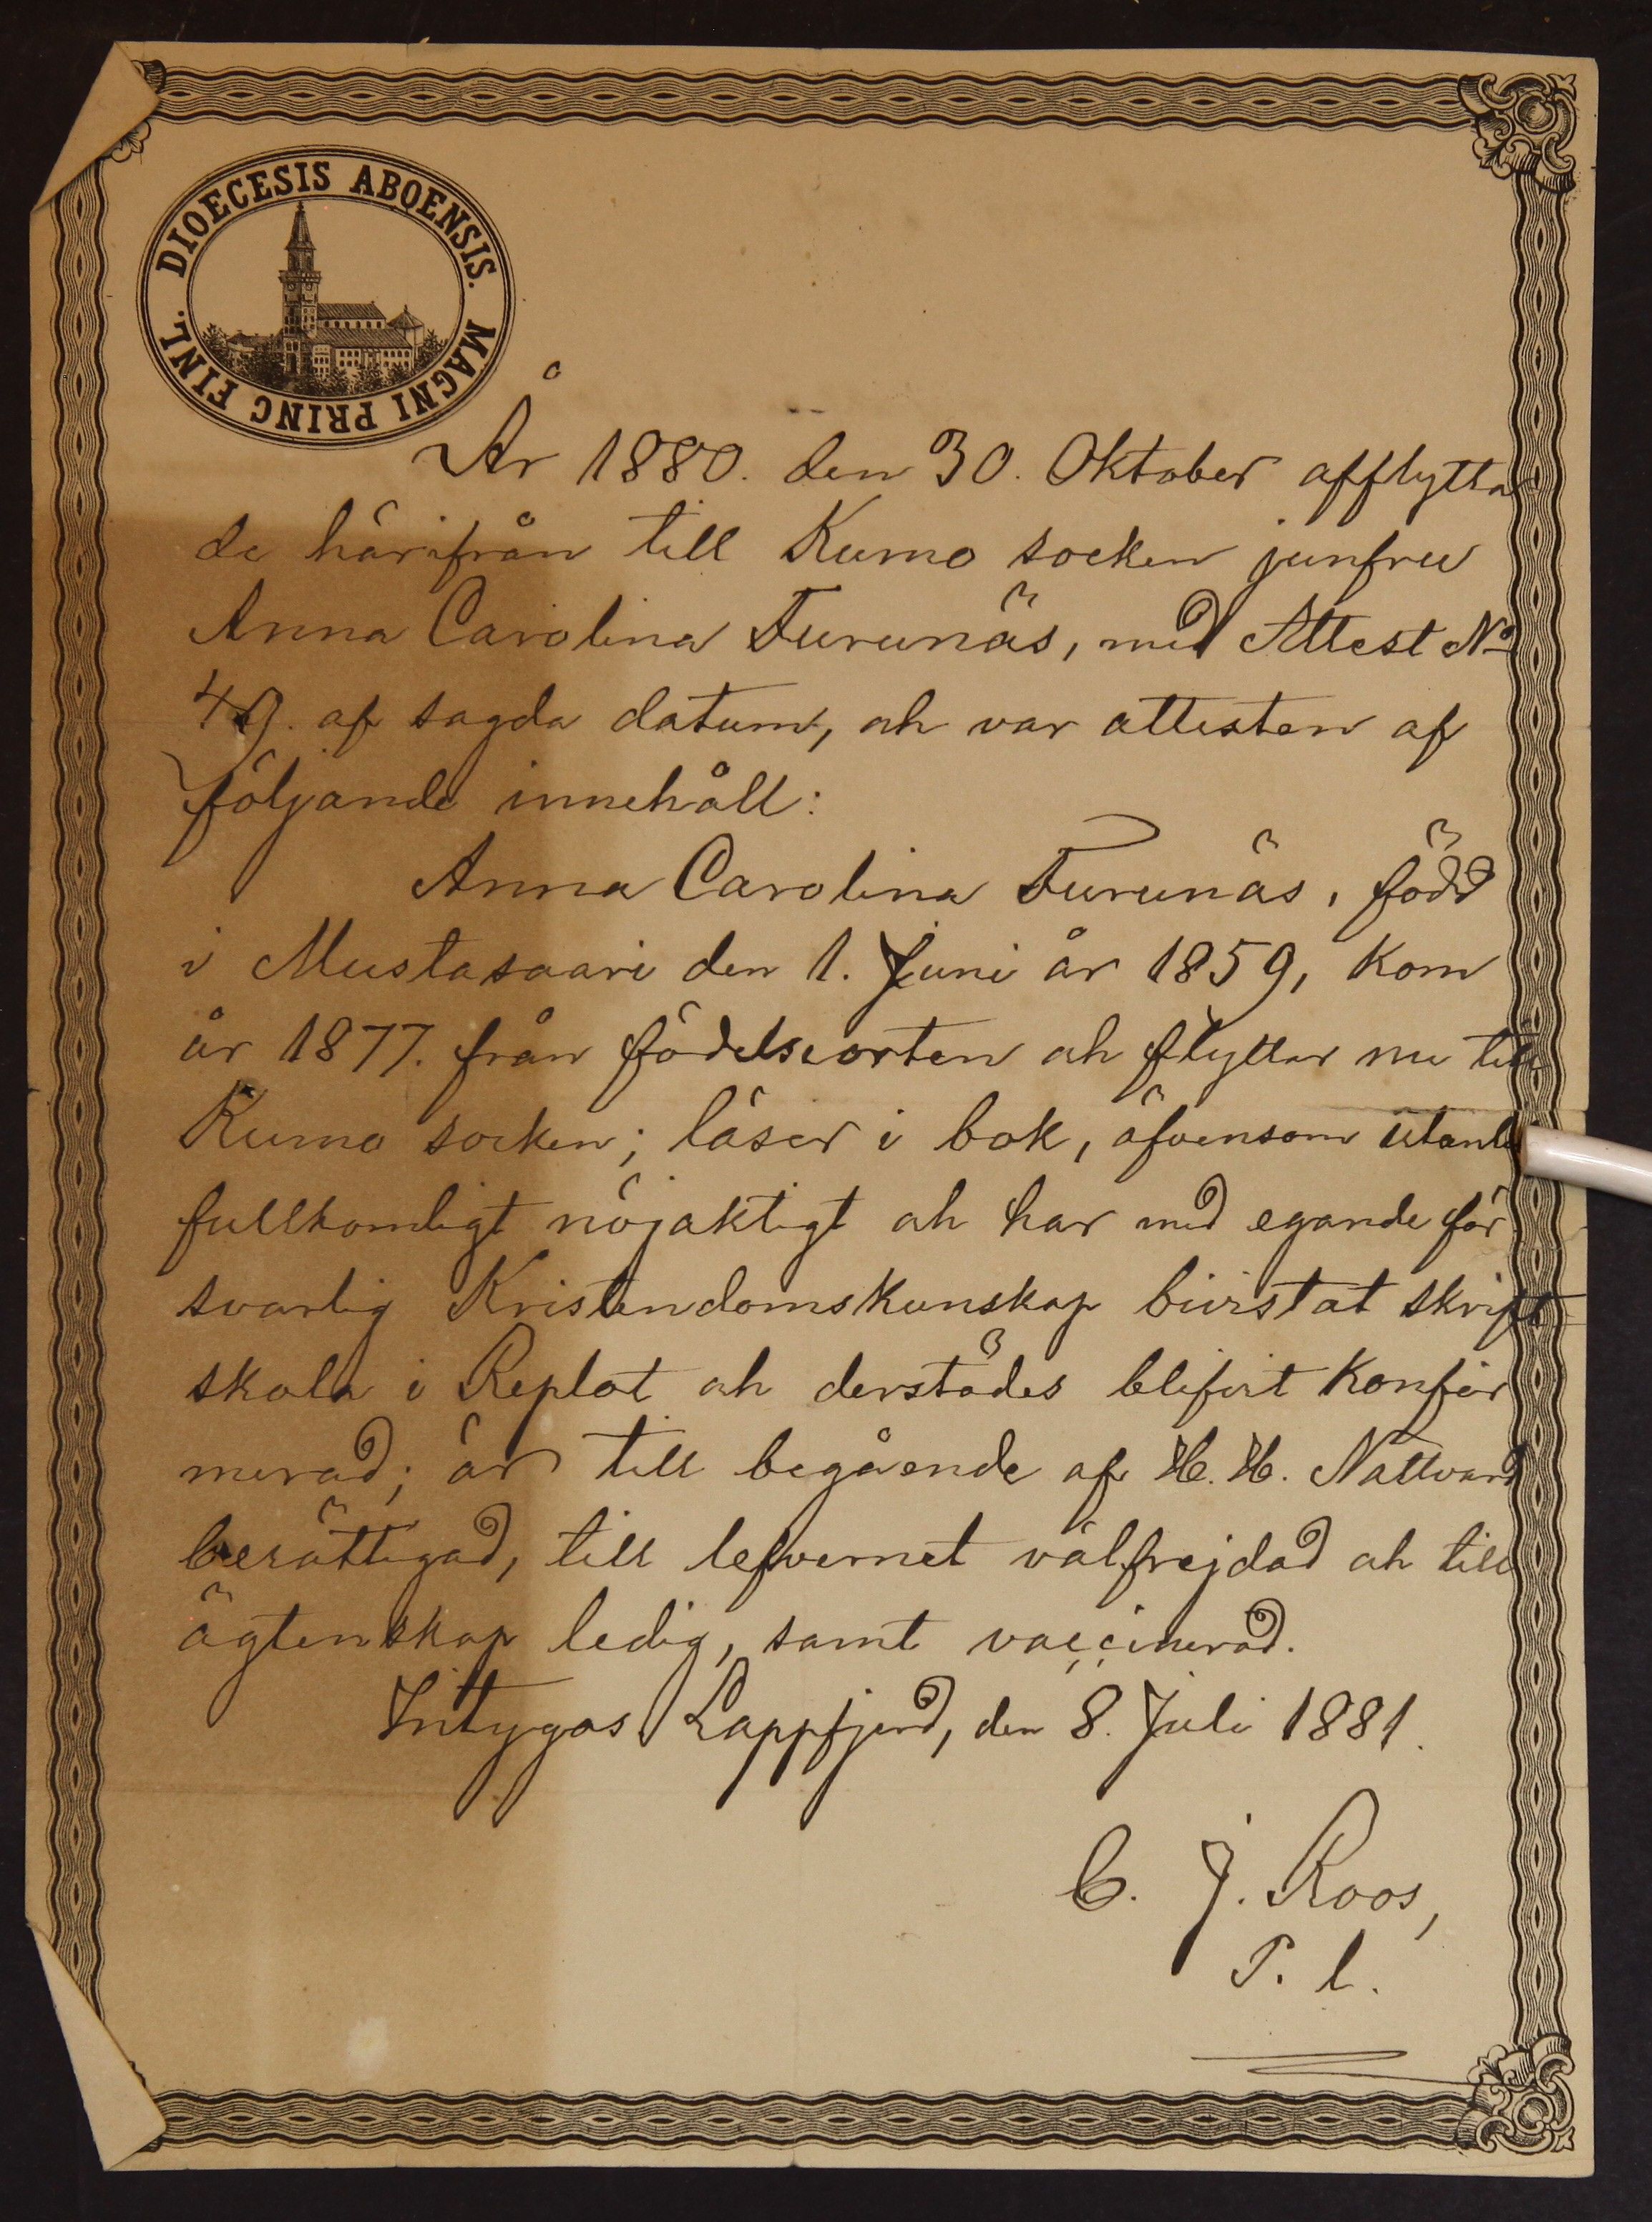 DIOECESIS ABOENSIS. MAGNI PRINC FINL.
År 1880. den 30. Oktober afflytta
de härifrån till Kumo socken junfru
Anna Carolina Furunäs, med Attest No
49. af sagda datum, och var attesten af
följande innehåll:
Anna Carolina Furunäs, född
i Mustasaari den 1. Juni år 1859, kom
år 1877. från födelseorten och flyttar nu till
Kumo socken; läser i bok, äfvensom utantill
fullkomligt nöjaktigt och har med egande för
svarlig Kristendomskunskap bivistat skrift
skola i Replot och derstädes blifvit konfir
merad; är till begående af H. H. Nattvard
berättigad, till lefvernet välfrejdad och till
ägtenskap ledig, samt vaccinerad.
Intygas Lappfjerd, den 8. Juli 1881.
C. J. Roos,
P. l.